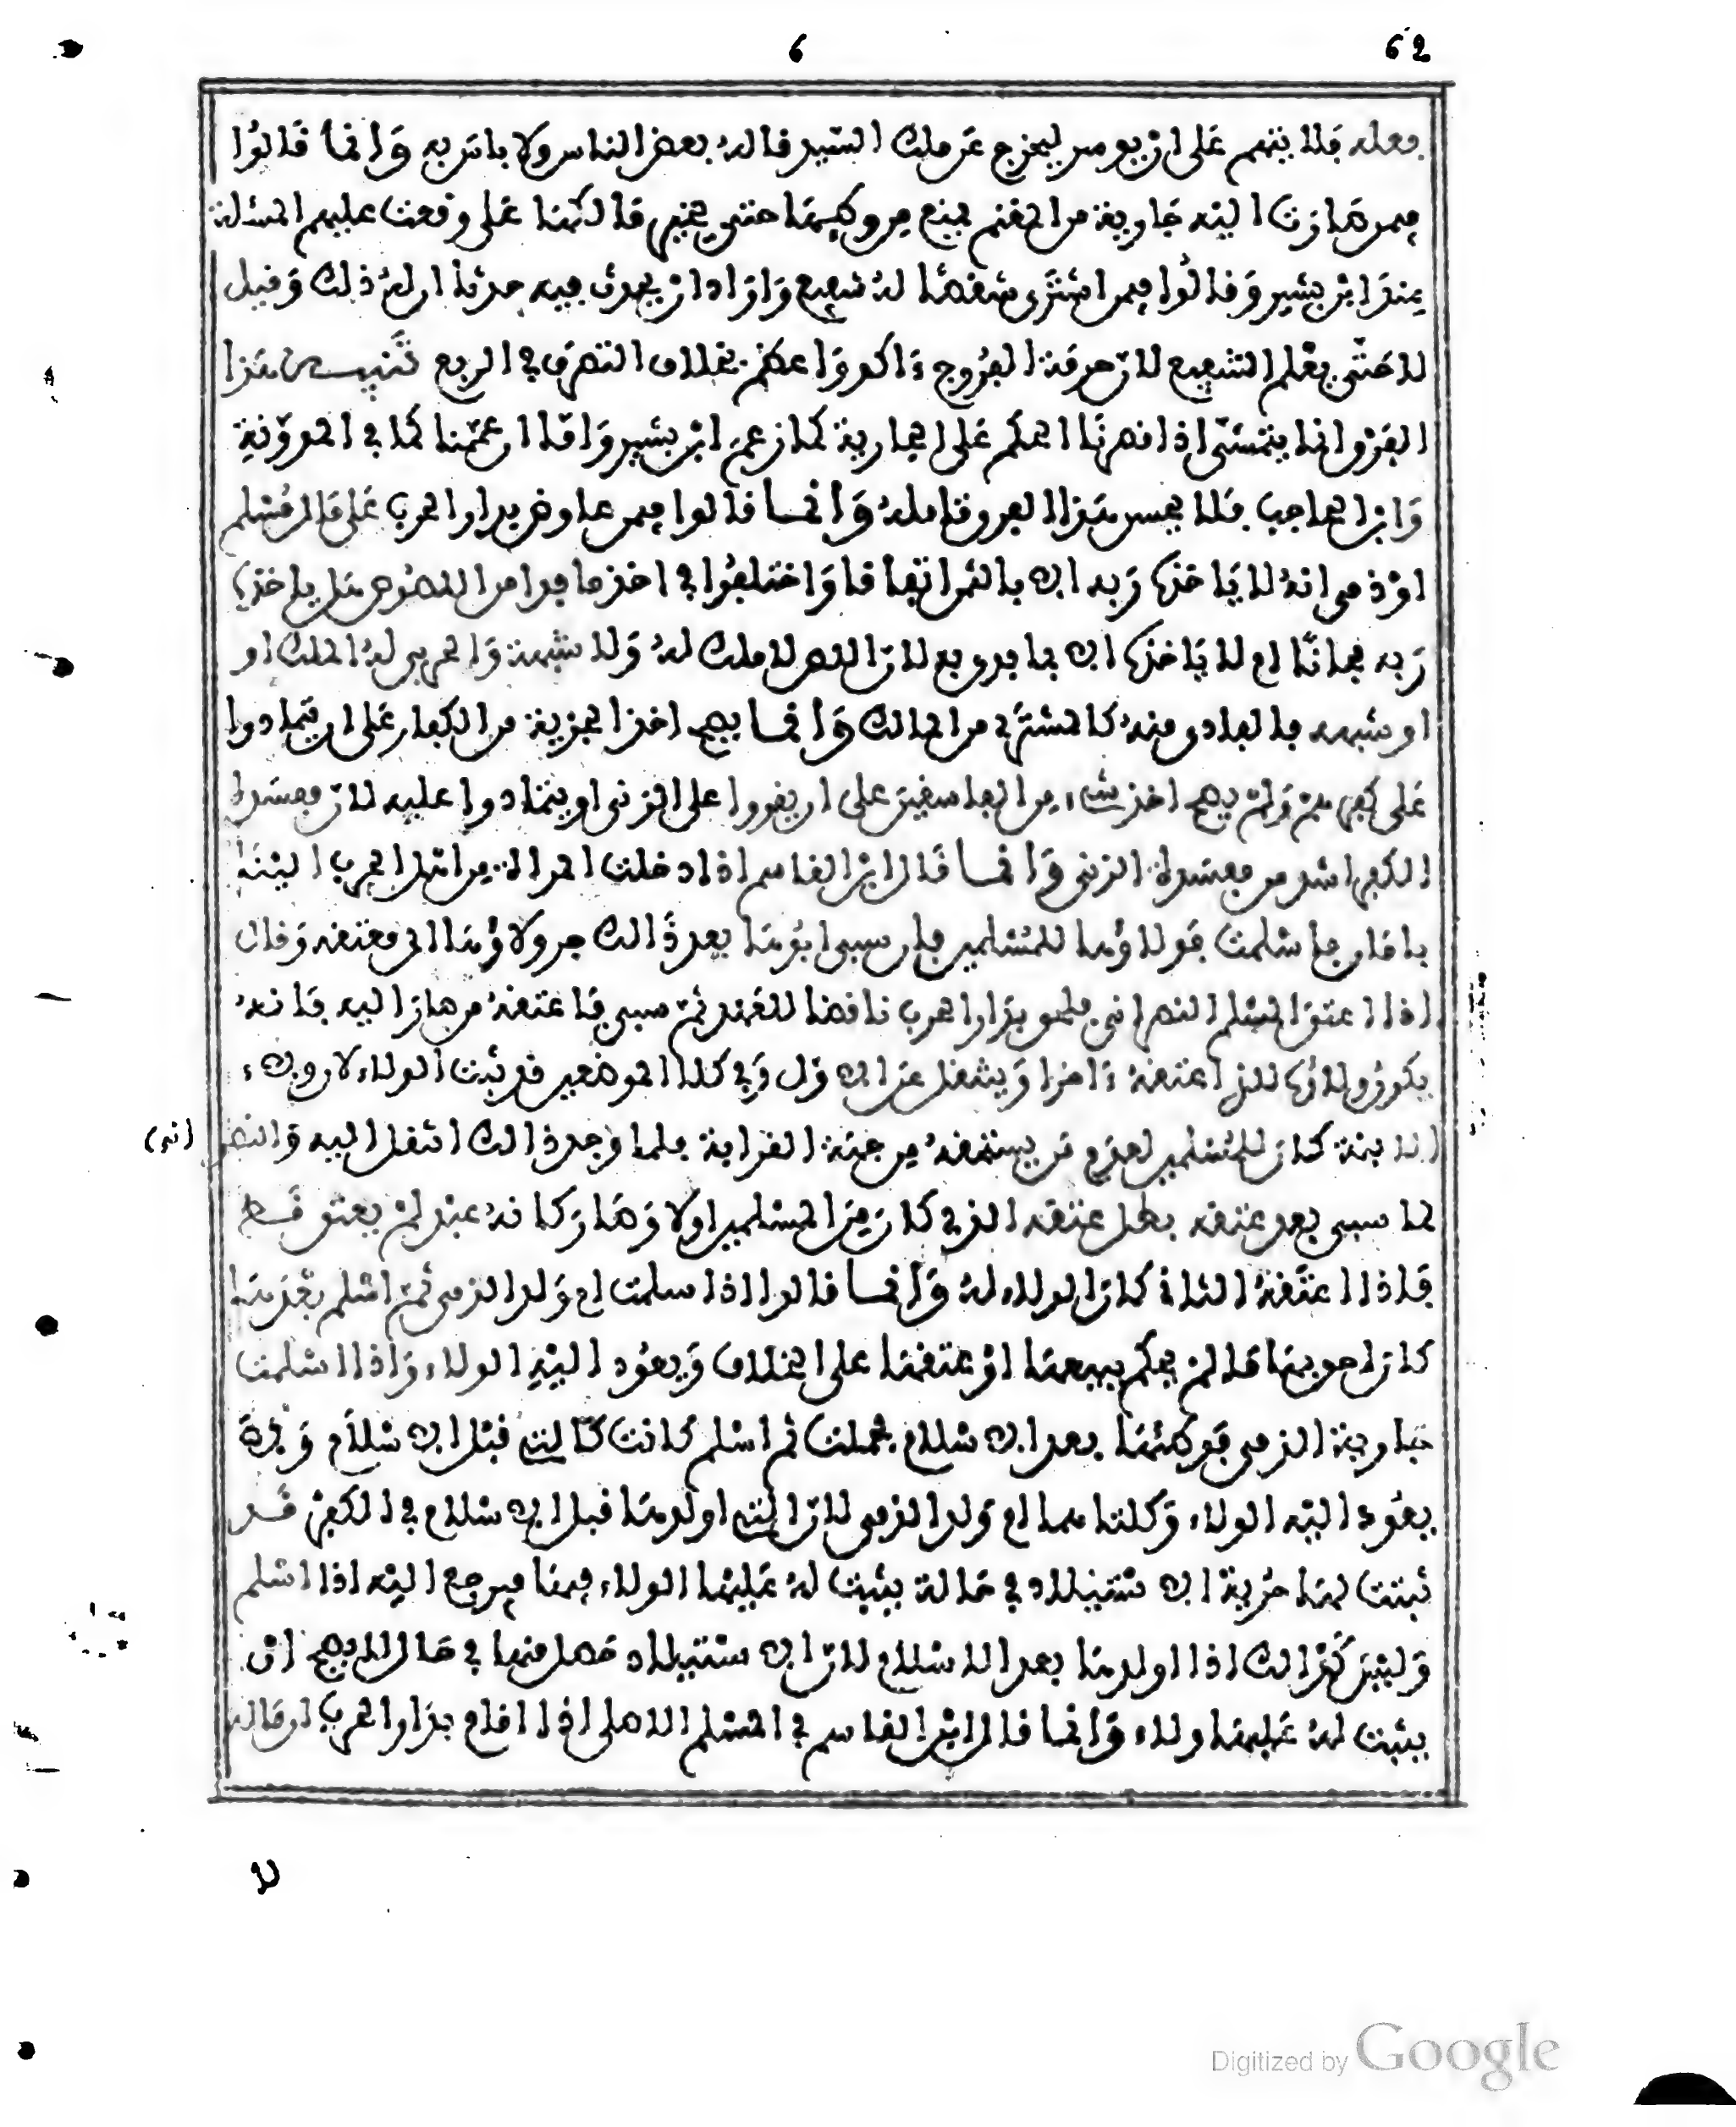 62
6
بعله فلا يتهم على ان يومر ليخرج عن ملك السيد قاله بعض الناس ولا باس به وانما قالوا
فيمن صارت اليه جارية من المغنم يمنع من وطئها حتى يخير مالكها على وقعت عليهم المسئلة
عند ابن بشير وقالوا فيمن اشترى شقصا له شفيع واراد ان يحدث فيه حدثا ان له ذلك وقيل
لا حتى يعلم الشفيع لان حرمة الفروج ءاكد واعظم بخلاف التصرف في الربع تنبيه هذا
الفرق انما يتمشى اذا قصرنا الحكم على الجارية كما زعم ابن بشير واما ان عممنا كما في المدونة
وابن الحاجب فلا يحسن هذا الفرق تامله وانما قالوا فيمن عاوض بدار الحرب على مال مسلم
او ذمي انه لا ياخذه ربه الا بالثمن اتفاقا واختلفوا في اخذ ما فدا من اللصوص هل ياخذه
ربه مجانا ام لا ياخذه الا بما فدي به لان اللص لا ملك له ولا شبهة والحربي له الملك او
او شبهه فالفادي منه كالمشتري من المالك وانما يصح اخذ الجزية من الكفار على ان يتمادوا
على كفرهم ولم يصح اخذ شيء من الفاسقين على ان يقروا على الزنى او يتمادوا عليه لان مفسدة
الكفر اشد من مفسدة الزنى وانما قال ابن القاسم اذا دخلت المراة من اهل الحرب الينا
بامان فاسلمت فولاؤها للمسلمين فان سبي ابوها بعد ذالك جر ولاؤها الى معتقه وقال
اذا اعتق المسلم النصراني فلحق بدار الحرب ناقضا للعهد ثم سبي فاعتقه من صار اليه فانه
يكون ولاؤه للذي اعتقه ءاخرا وينتقل عن الاول وفي كلا الموضعين قد ثبت الولاء لان ولاء
الابنة كان للمسلمين لعدم من يستحقه من جهة القرابة فلما وجد ذالك انتقل اليه والنصر (اني)
لما سبي بعد عتقه بطل عتقه الذي كان من المسلمين اولا وصار كانه عبد لم يعتق قط
فاذا اعتقه الثاني كان الولاء له وانما قالوا اذا اسلمت ام ولد الذمي ثم اسلم بعدها
كان احق بها ما لم يحكم ببيعها او عتقها على الخلاف ويعود اليه الولاء واذا اسلمت
جارية الذمي فوطئها بعد الاسلام فحملت ثم اسلم كانت كالتي قبل الاسلام ولا
يعود اليه الولاء وكلتاهما ام ولد الذمي لان التي اولدها قبل الاسلام في الكفر قد
ثبتت لها حرية الاستيلاد في حالة يثبت له عليها الولاء فيها فيرجع اليه اذا اسلم
وليس كذالك اذا اولدها بعد الاسلام لان الاستيلاد حصل منها في حال لا يصح ان
يثبت له عليها ولاء وانما قال ابن القاسم في المسلم الاصلي اذا اقام بدار الحرب ان ماله
لا
Digitized by Google